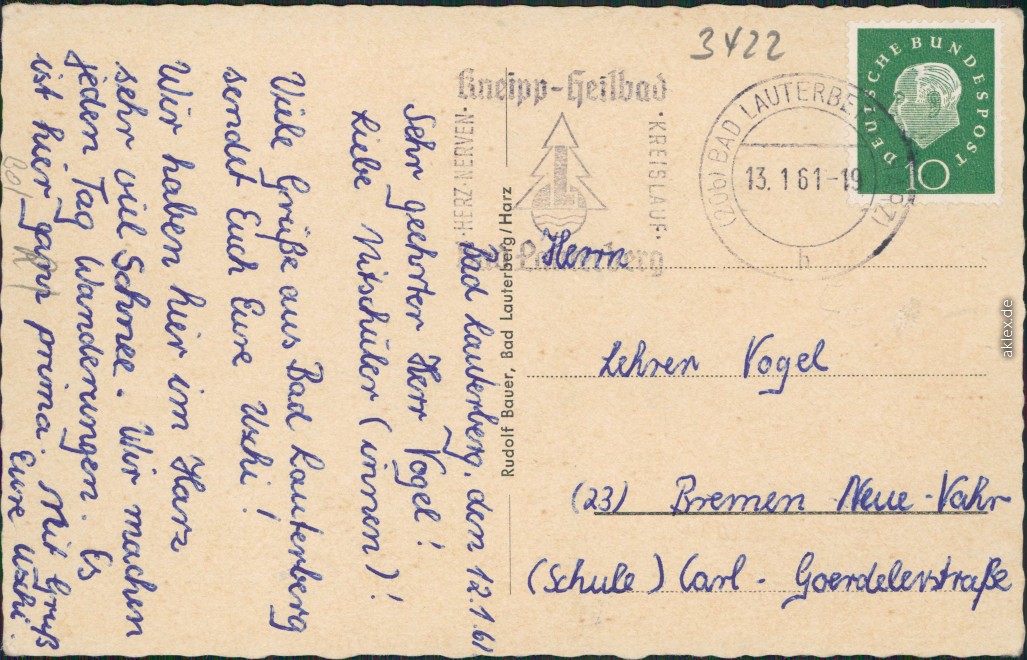 3422
Kneipp-Heilbad
· HERZ · NERVEN ·
· KREISLAUF ·
Bad Lauterberg
(20b) BAD LAUTERBE
13.1.61-19
h
DEUTSCHE BUNDESPOST
10
Bad Lauterberg, den 12.1.61
Sehr geehrter Herr Vogel!
Liebe Mitschüler (innen)!
Viele Grüße aus Bad Lauterberg
sendet Euch Eure Uschi!
Wir haben hier im Harz
sehr viel Schnee. Wir machen
jeden Tag Wanderungen. Es
ist hier ganz prima. Mit Gruß
Eure Uschi.
Rudolf Bauer, Bad Lauterberg/Harz
Herrn
Lehrer Vogel
(23) Bremen Neue-Vahr
(Schule) Carl-Goerdelerstraße
aklex.de